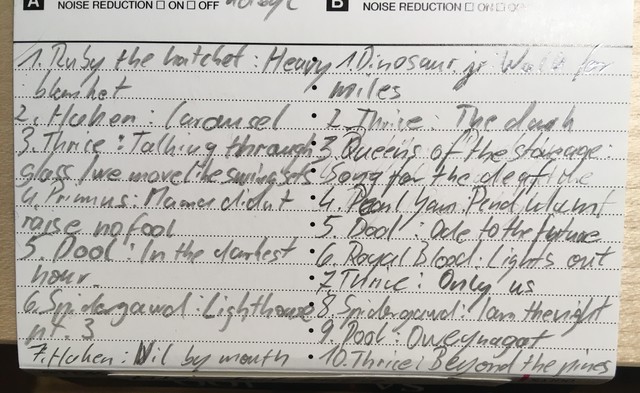 A NOISE REDUCTION ☐ ON ☐ OFF
B NOISE REDUCTION ☐ ON ☐ OFF
1. Ruby the hatchet: Heavy
blanket
2. Haken: Carousel
3. Thrice: Talking through
glass/we move like swing sets
4. Primus: Mama didnt
raise no fool
5. Dool: In the darkest
hour
6. Spidergawd: Lighthouse
pt. 3
7. Haken: Nil by mouth
1. Dinosaur jr: Walk for
miles
2. Thrice: The dark
3. Queens of the stoneage:
Song for the deaf
4. Pearl Jam:
5. Dool: Ode to the future
6. Royal Blood: Lights out
7. Thrice: Only us
8. Spidergawd: I am the night
9. Dool: Oweynagat
10. Thrice: Beyond the pines